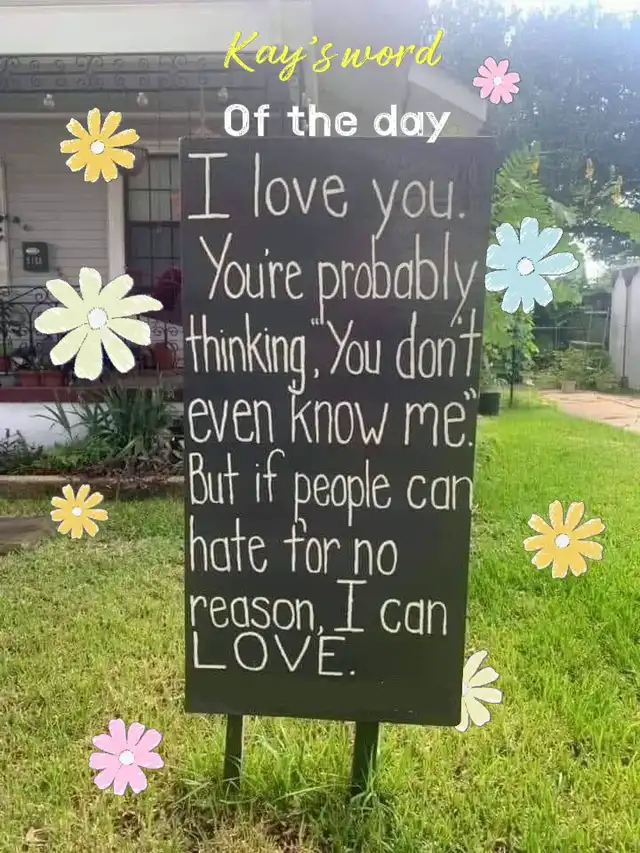 Kay's word
Of the day
I love you.
You're probably
thinking, "You don't
even know me."
But if people can
hate for no
reason, I can
LOVE.